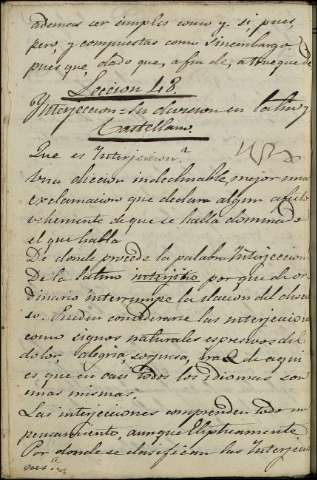 ademas ser simples como y, si, pues,
pero, y compuestas como Sinembargo,
pues que, dado que, a fin de, a trueque de
Leccion 48.
Interjeccion = Su division en latin y
Castellano.
Que es Interjeccion.ª
Una diccion indeclinable, mejor una
exclamacion que declara algun afecto
vehemente de que se halla dominado
el que habla
De donde procede la palabra Interjeccion
De la latina interjitio por que de or-
dinario interrumpe la ilacion del discur-
so. Pueden considerarse las interjeccion
como signos naturales espresivos del
dolor, alegria, sorpresa, ira & de aqui
es que en casi todos los idiomas son
unas mismas.
Las interjecciones comprenden todo un
pensamiento, aunque Elipticamente
Por donde se clasifican las Interjecio
nes.ª